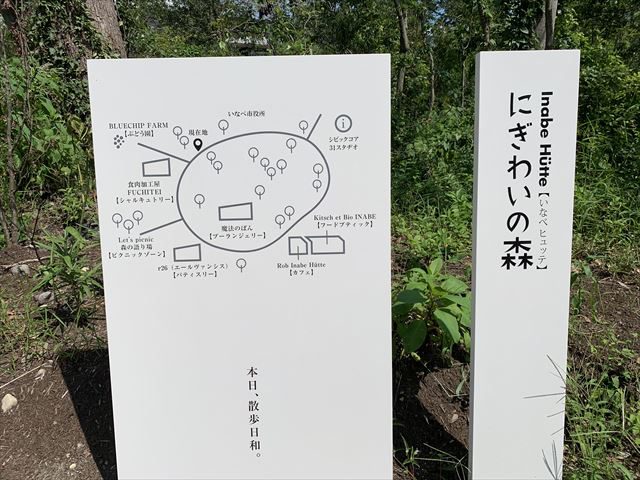 いなべ市役所
BLUECHIP FARM
【ぶどう園】
現在地
i
シビックコア
31スタヂオ
食肉加工屋
FUCHITEI
【シャルキュトリー】
魔法のぱん
【ブーランジェリー】
Kitsch et Bio INABE
【フードブティック】
Let's picnic
森の語り場
【ピクニックゾーン】
r26（エールヴァンシス）
【パティスリー】
Rob Inabe Hütte
【カフェ】
本日、散歩日和。
Inabe Hütte【いなべヒュッテ】
にぎわいの森